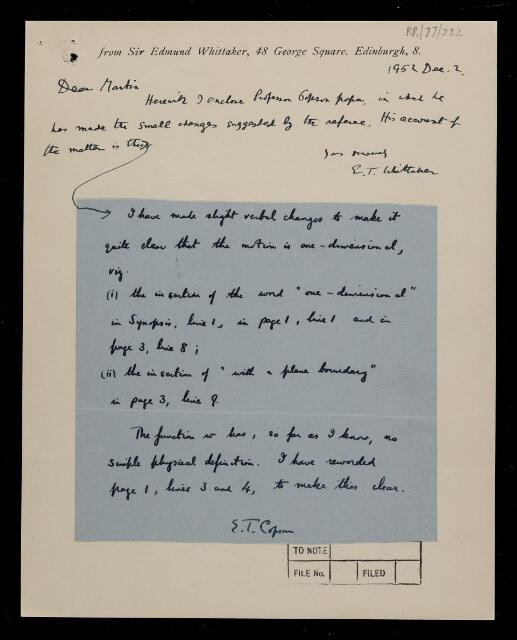 RR/77/232
from Sir Edmund Whittaker, 48 George Square, Edinburgh, 8.
1952 Dec. 2.
Dear Martin
Herewith I enclose Professor Copson paper, in which he
has made the small changes suggested by the referee. His account of
the matter is this
Yours sincerely
E. T. Whittaker
I have made slight verbal changes to make it
quite clear that the motion is one-dimensional,
viz.
(i) the insertion of the word "one-dimensional"
in Synopsis, line 1, in page 1, line 1 and in
page 3, line 8;
(ii) the insertion of "with a plane boundary"
in page 3, line 9.
The function w has, so far as I know, no
simple physical definition. I have reworded
page 1, lines 3 and 4, to make this clear.
E.T. Copson
TO NOTE
FILE No. FILED